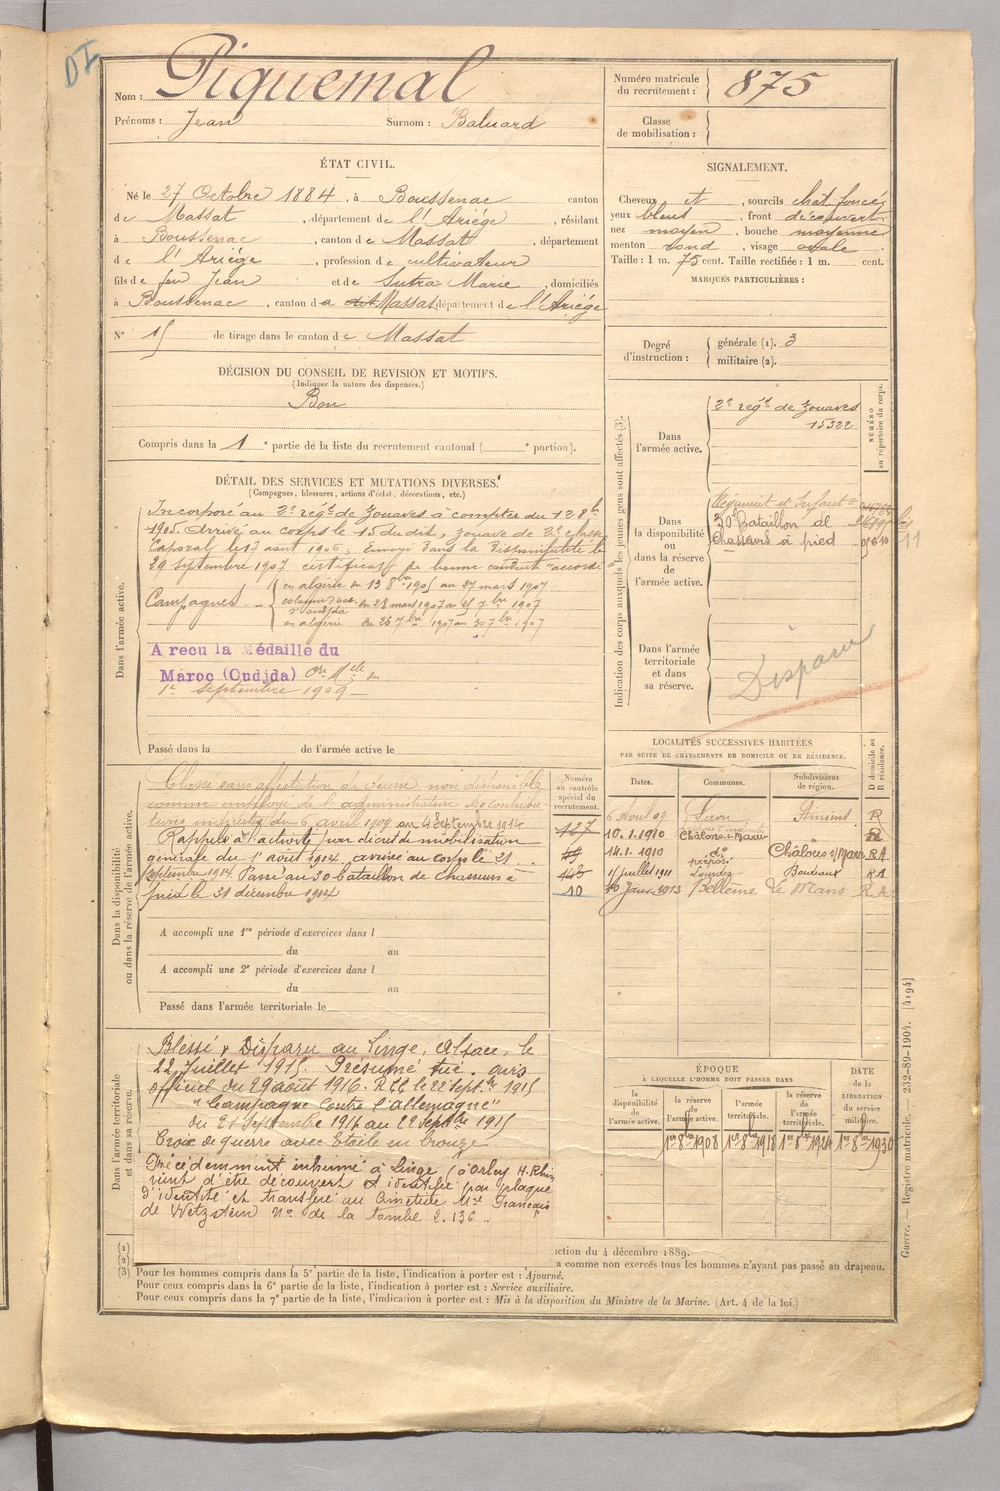 DI
Nom : Piquemal
Prénoms : Jean Surnom : Baluard
Numéro matricule du recrutement : 875
Classe de mobilisation :
ÉTAT CIVIL.
Né le 27 Octobre 1884, à Boussenac canton
de Massat, département de l'Ariége, résidant
à Boussenac, canton de Massat, département
de l'Ariége, profession de cultivateur
fils de feu Jean et de Sutra Marie, domiciliés
à Boussenac, canton d a dit Massat, département de l'Ariége
N° 15 de tirage dans le canton de Massat
SIGNALEMENT.
Cheveux et, sourcils chât. foncé
yeux bleus, front découvert
nez moyen, bouche moyenne
menton rond, visage ovale
Taille : 1 m. 75 cent. Taille rectifiée : 1 m. cent.
MARQUES PARTICULIÈRES :
Degré d'instruction : générale (1). 3
militaire (2).
DÉCISION DU CONSEIL DE REVISION ET MOTIFS.
(Indiquer la nature des dispenses.)
Bon
Compris dans la 1e partie de la liste du recrutement cantonal ( e portion).
DÉTAIL DES SERVICES ET MUTATIONS DIVERSES.
(Campagnes, blessures, actions d'éclat, décorations, etc.)
Dans l'armée active.
Incorporé au 2e régt de Zouaves à compter du 12 8bre
1905. Arrivé au corps le 15 du dit, zouave de 2e classe
Caporal le 17 août 1906, Envoyé dans la disponibilité le
29 septembre 1907 certificat de bonne conduite accordé
Campagnes. en algérie du 13 8bre 1905 au 27 mars 1907
colonne d'occ. d'oudjda du 28 mars 1907 au 25 7bre 1907
en algérie du 26 7bre 1907 au 27 7bre 1907
A reçu la Médaille du
Maroc (Oudjda) Ore Mle du
1er septembre 1909
Passé dans la de l'armée active le
Indication des corps auxquels les jeunes gens sont affectés (3).
NUMÉRO au répertoire du corps.
Dans l'armée active.
2e régt de Zouaves
15322
Dans la disponibilité ou dans la réserve de l'armée active.
Régiment d'Infanterie
30e Bataillon de
chasseurs à pied
Dans l'armée territoriale et dans sa réserve.
Disparu
Dans la disponibilité ou dans la réserve de l'armée active.
Classé sans affectation douane non disponible
comme employé de l'administration des contribu
tions indirectes du 6 avril 1909 au 4 Septembre 1914
Rappelé à l'activité par décret de mobilisation
générale du 1er août 1914. arrivé au corps le 21
septembre 1914 Passé au 30 bataillon de Chasseurs à
pied le 31 décembre 1914
A accompli une 1re période d'exercices dans l
du au
A accompli une 2e période d'exercices dans l
du au
Passé dans l'armée territoriale le
Numéro au contrôle spécial du recrutement.
127
10
LOCALITÉS SUCCESSIVES HABITÉES
PAR SUITE DE CHANGEMENTS DE DOMICILE OU DE RÉSIDENCE.
Dates. Communes. Subdivisions de région. D domicile ou R résidence.
6 Avril 09 R
10.1.1910 Châlons s/Marne R
14.1.1910 do Châlons s/Marne R A
11 juillet 1911 Lourdes Bordeaux R A
10 Janv. 1913 Bellême Le Mans R A
Dans l'armée territoriale et dans sa réserve.
Blessé & Disparu au Linge, Alsace, le
22 Juillet 1915. Présumé tué. avis
officiel du 29 août 1916. R.C.C. le 22 Septbre 1915
"Campagne Contre l'Allemagne"
du 21 Septembre 1914 au 22 Septbre 1915
Croix de guerre avec Etoile en bronze
Précédemment inhumé à Linge (à Orbey H. Rhin
vient d'être découvert et identifié par plaque
d'identité et transféré au Cimetière Mre Français
de Wetzstein No de la tombe 2.136.
ÉPOQUE
À LAQUELLE L'HOMME DOIT PASSER DANS
la disponibilité de l'armée active. la réserve de l'armée active. l'armée territoriale. la réserve de l'armée territoriale. DATE de la LIBÉRATION du service militaire.
1er 8bre 1908 1er 8bre 1918 1er 8bre 1924 1er 8bre 1930
(1)
(2)
ction du 4 décembre 1889.
a comme non exercés tous les hommes n'ayant pas passé au drapeau.
(3) Pour les hommes compris dans la 5e partie de la liste, l'indication à porter est : Ajourné.
Pour ceux compris dans la 6e partie de la liste, l'indication à porter est : Service auxiliaire.
Pour ceux compris dans la 7e partie de la liste, l'indication à porter est : Mis à la disposition du Ministre de la Marine. (Art. 4 de la loi.)
Guerre. — Registre matricule. — 232-89-1904. [4194]